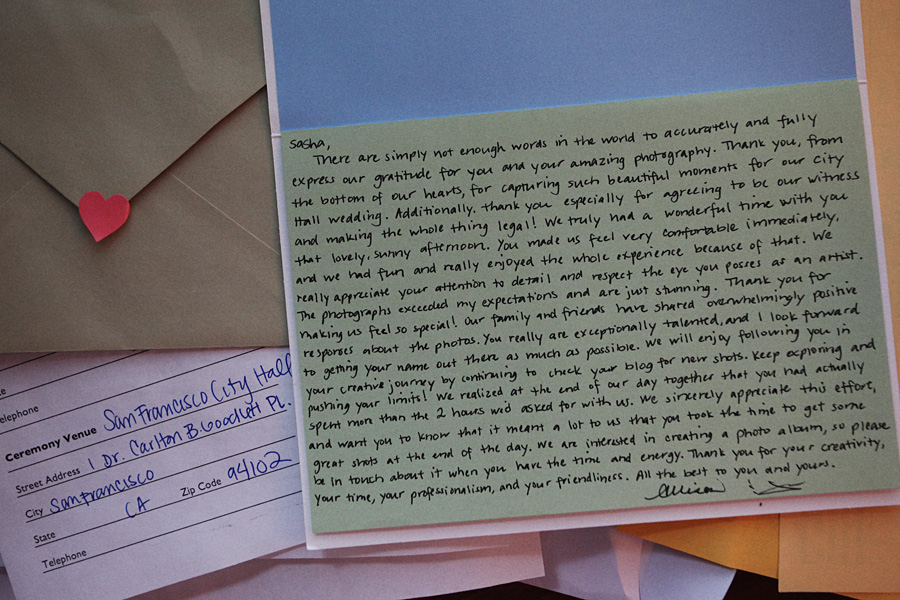 Sasha,
There are simply not enough words in the world to accurately and fully
express our gratitude for you and your amazing photography. Thank you, from
the bottom of our hearts, for capturing such beautiful moments for our City
Hall wedding. Additionally, thank you especially for agreeing to be our witness
and making the whole thing legal! We truly had a wonderful time with you
that lovely, sunny afternoon. You made us feel very comfortable immediately,
and we had fun and really enjoyed the whole experience because of that. We
really appreciate your attention to detail and respect the eye you posses as an artist.
The photographs exceeded my expectations and are just stunning. Thank you for
making us feel so special! Our family and friends have shared overwhelmingly positive
responses about the photos. You really are exceptionally talented, and I look forward
to getting your name out there as much as possible. We will enjoy following you in
your creative journey by continuing to check your blog for new shots. Keep exploring and
pushing your limits! We realized at the end of our day together that you had actually
spent more than the 2 hours we'd asked for with us. We sincerely appreciate this effort,
and want you to know that it meant a lot to us that you took the time to get some
great shots at the end of the day. We are interested in creating a photo album, so please
be in touch about it when you have the time and energy. Thank you for your creativity,
your time, your professionalism, and your friendliness. All the best to you and yours.
Allison
Telephone
Ceremony Venue San Francisco City Hall
Street Address 1 Dr. Carlton B Goodlett Pl.
City San Francisco
State CA Zip Code 94102
Telephone